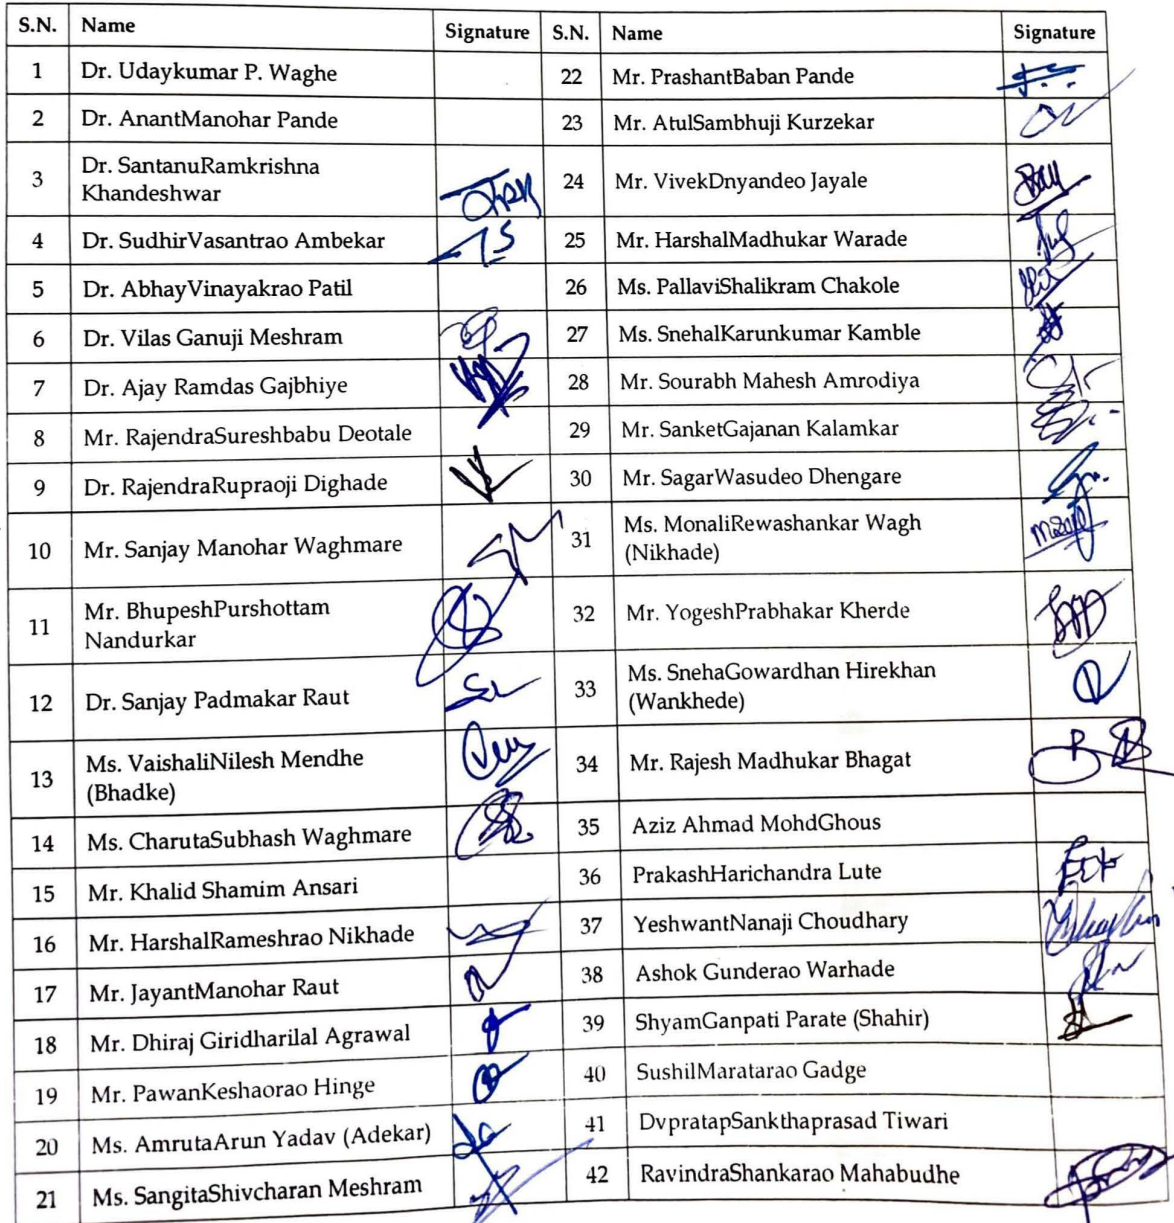 S.N. Name Signature S.N. Name Signature
1 Dr. Udaykumar P. Waghe 22 Mr. PrashantBaban Pande
2 Dr. AnantManohar Pande 23 Mr. AtulSambhuji Kurzekar
3 Dr. SantanuRamkrishna
Khandeshwar 24 Mr. VivekDnyandeo Jayale
4 Dr. SudhirVasantrao Ambekar 25 Mr. HarshalMadhukar Warade
5 Dr. AbhayVinayakrao Patil 26 Ms. PallaviShalikram Chakole
6 Dr. Vilas Ganuji Meshram 27 Ms. SnehalKarunkumar Kamble
7 Dr. Ajay Ramdas Gajbhiye 28 Mr. Sourabh Mahesh Amrodiya
8 Mr. RajendraSureshbabu Deotale 29 Mr. SanketGajanan Kalamkar
9 Dr. RajendraRupraoji Dighade 30 Mr. SagarWasudeo Dhengare
10 Mr. Sanjay Manohar Waghmare 31 Ms. MonaliRewashankar Wagh
(Nikhade)
11 Mr. BhupeshPurshottam
Nandurkar 32 Mr. YogeshPrabhakar Kherde
12 Dr. Sanjay Padmakar Raut 33 Ms. SnehaGowardhan Hirekhan
(Wankhede)
13 Ms. VaishaliNilesh Mendhe
(Bhadke) 34 Mr. Rajesh Madhukar Bhagat
14 Ms. CharutaSubhash Waghmare 35 Aziz Ahmad MohdGhous
15 Mr. Khalid Shamim Ansari 36 PrakashHarichandra Lute
16 Mr. HarshalRameshrao Nikhade 37 YeshwantNanaji Choudhary
17 Mr. JayantManohar Raut 38 Ashok Gunderao Warhade
18 Mr. Dhiraj Giridharilal Agrawal 39 ShyamGanpati Parate (Shahir)
19 Mr. PawanKeshaorao Hinge 40 SushilMaratarao Gadge
20 Ms. AmrutaArun Yadav (Adekar) 41 DvpratapSankthaprasad Tiwari
21 Ms. SangitaShivcharan Meshram 42 RavindraShankarao Mahabudhe